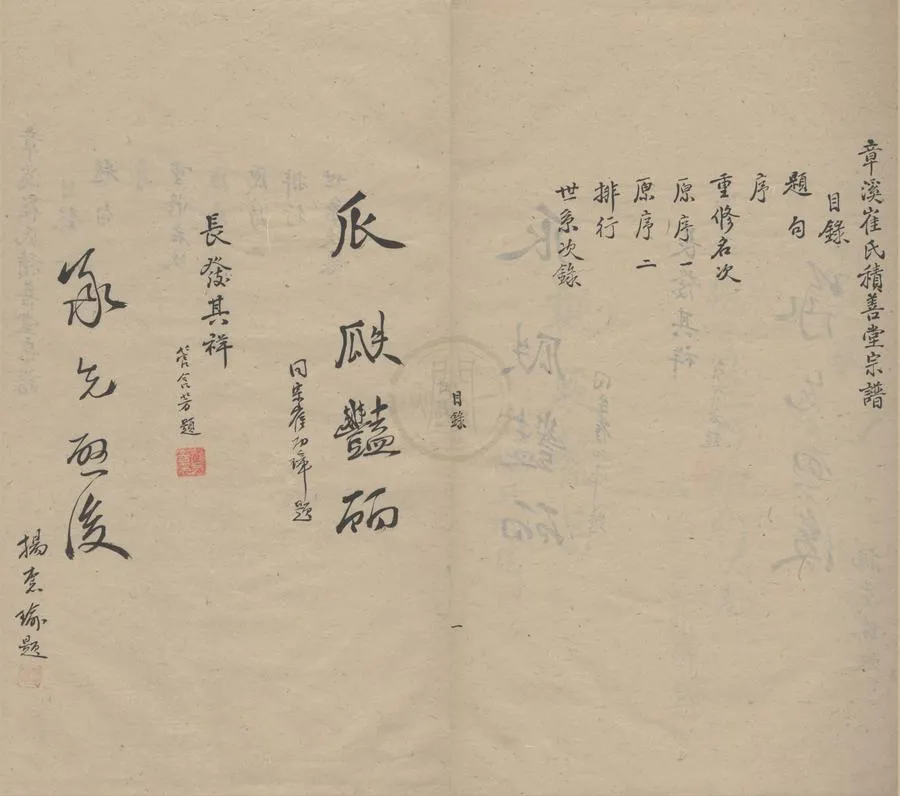 章溪崔氏積善堂宗譜
目錄
題句
序
重修名次
原序一
原序二
排行
世系次錄
目錄
一
瓜瓞
同宗崔 題
長發其祥
管含芳題
承先啟後
楊 瑜題